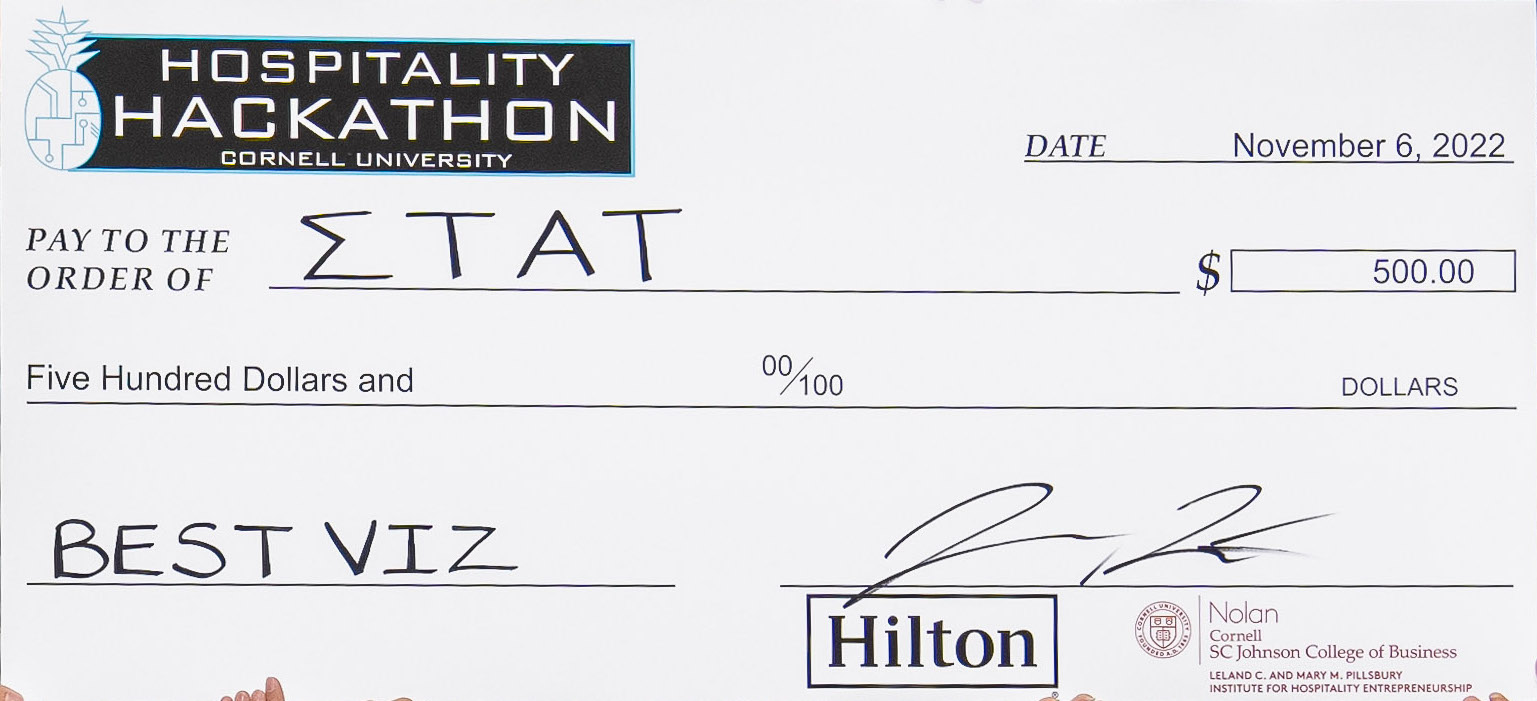 HOSPITALITY
HACKATHON
CORNELL UNIVERSITY
DATE November 6, 2022
PAY TO THE
ORDER OF ΣTAT
$ 500.00
Five Hundred Dollars and 00/100 DOLLARS
BEST VIZ
Hilton
®
CORNELL UNIVERSITY
FOUNDED A.D. 1865
Nolan
Cornell
SC Johnson College of Business
LELAND C. AND MARY M. PILLSBURY
INSTITUTE FOR HOSPITALITY ENTREPRENEURSHIP